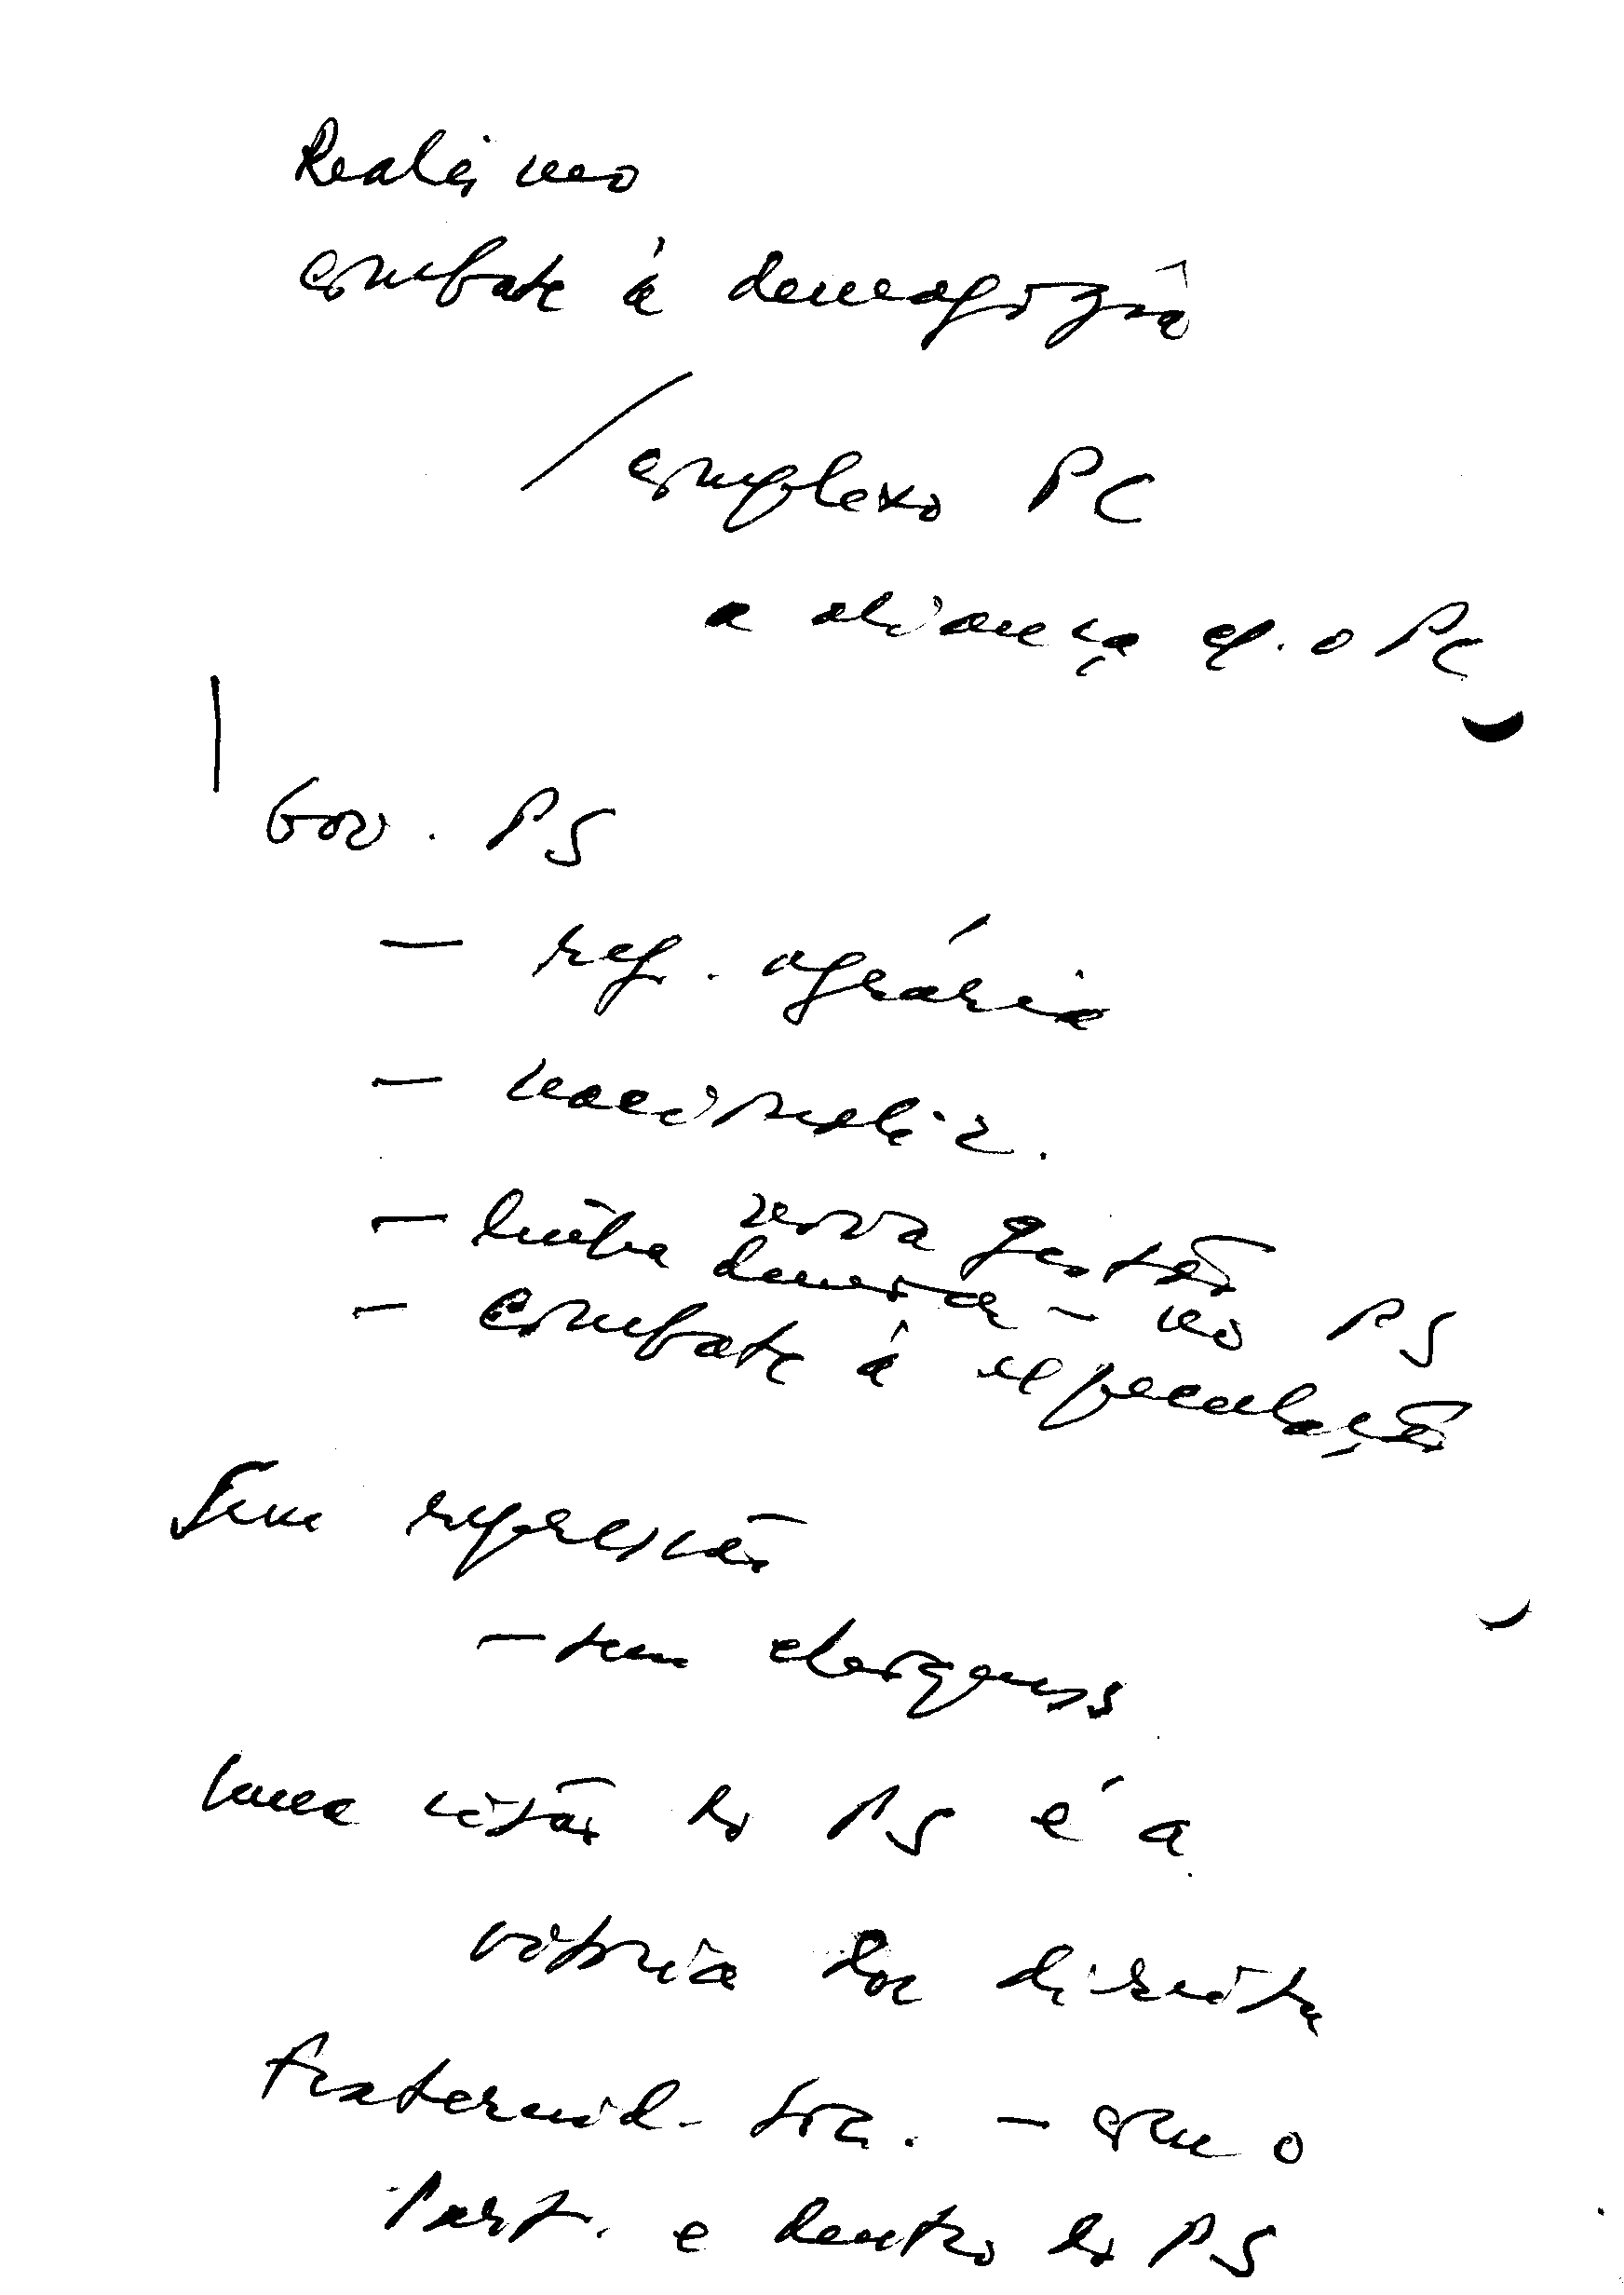 Realismo
combate à demagogia
/ complexo PC
a aliança c/. o PC
Gov. PS
— ref. agrária
— nacionaliz.
nova gestão
— linha democr — no PS
— combate à especulação
Sem repressão
— sem
Uma cisão do PS é a
vitória da direita
Fraternid. soc. — com o
Part. e dentro do PS